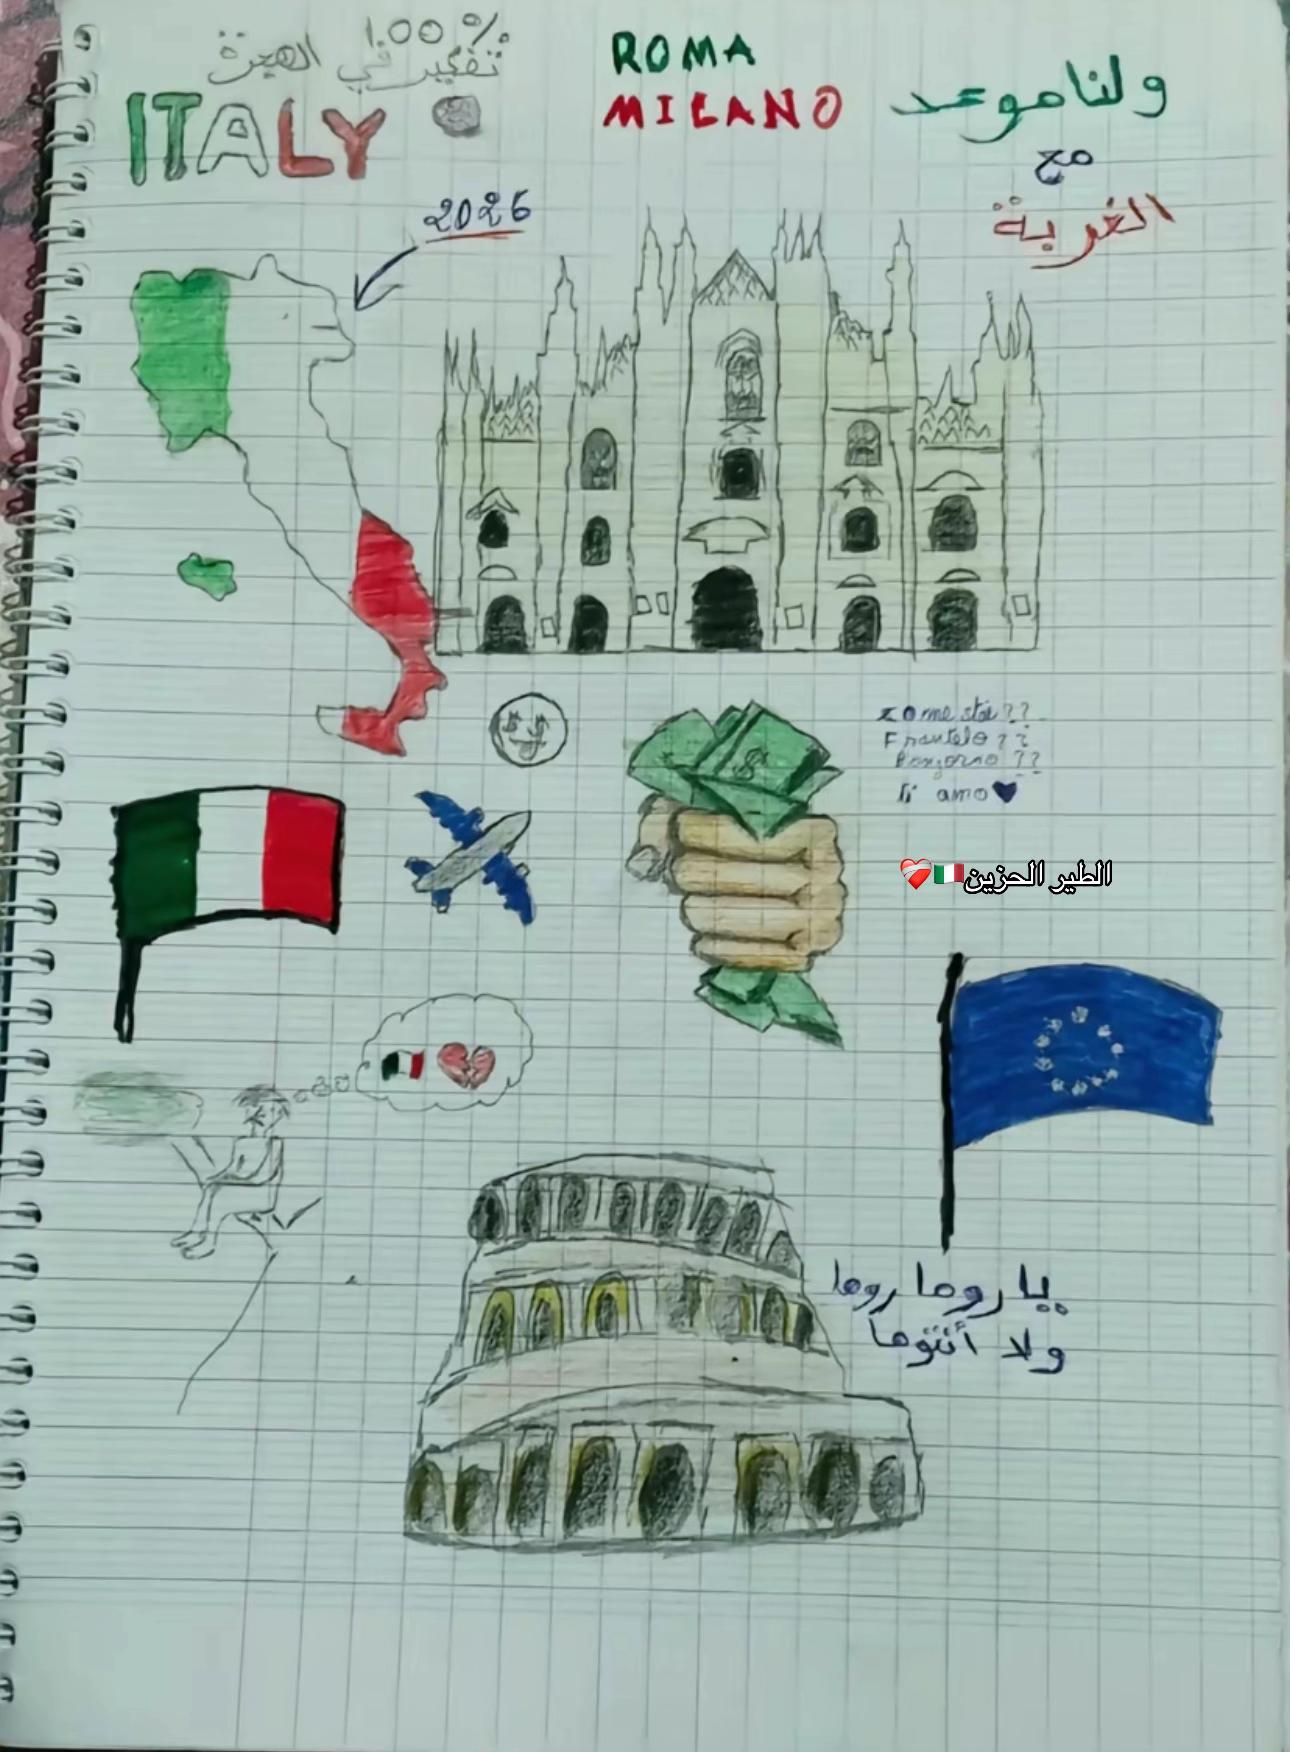 100 %
تفكير في الهجرة
ITALY
ROMA
MILANO
ولنا موعد
مع
الغربة
2026
Kome stai ??
Frautelo ??
Bonjorno ??
ti amo
الطير الحزين
يا روما روما
ولا أنتوما